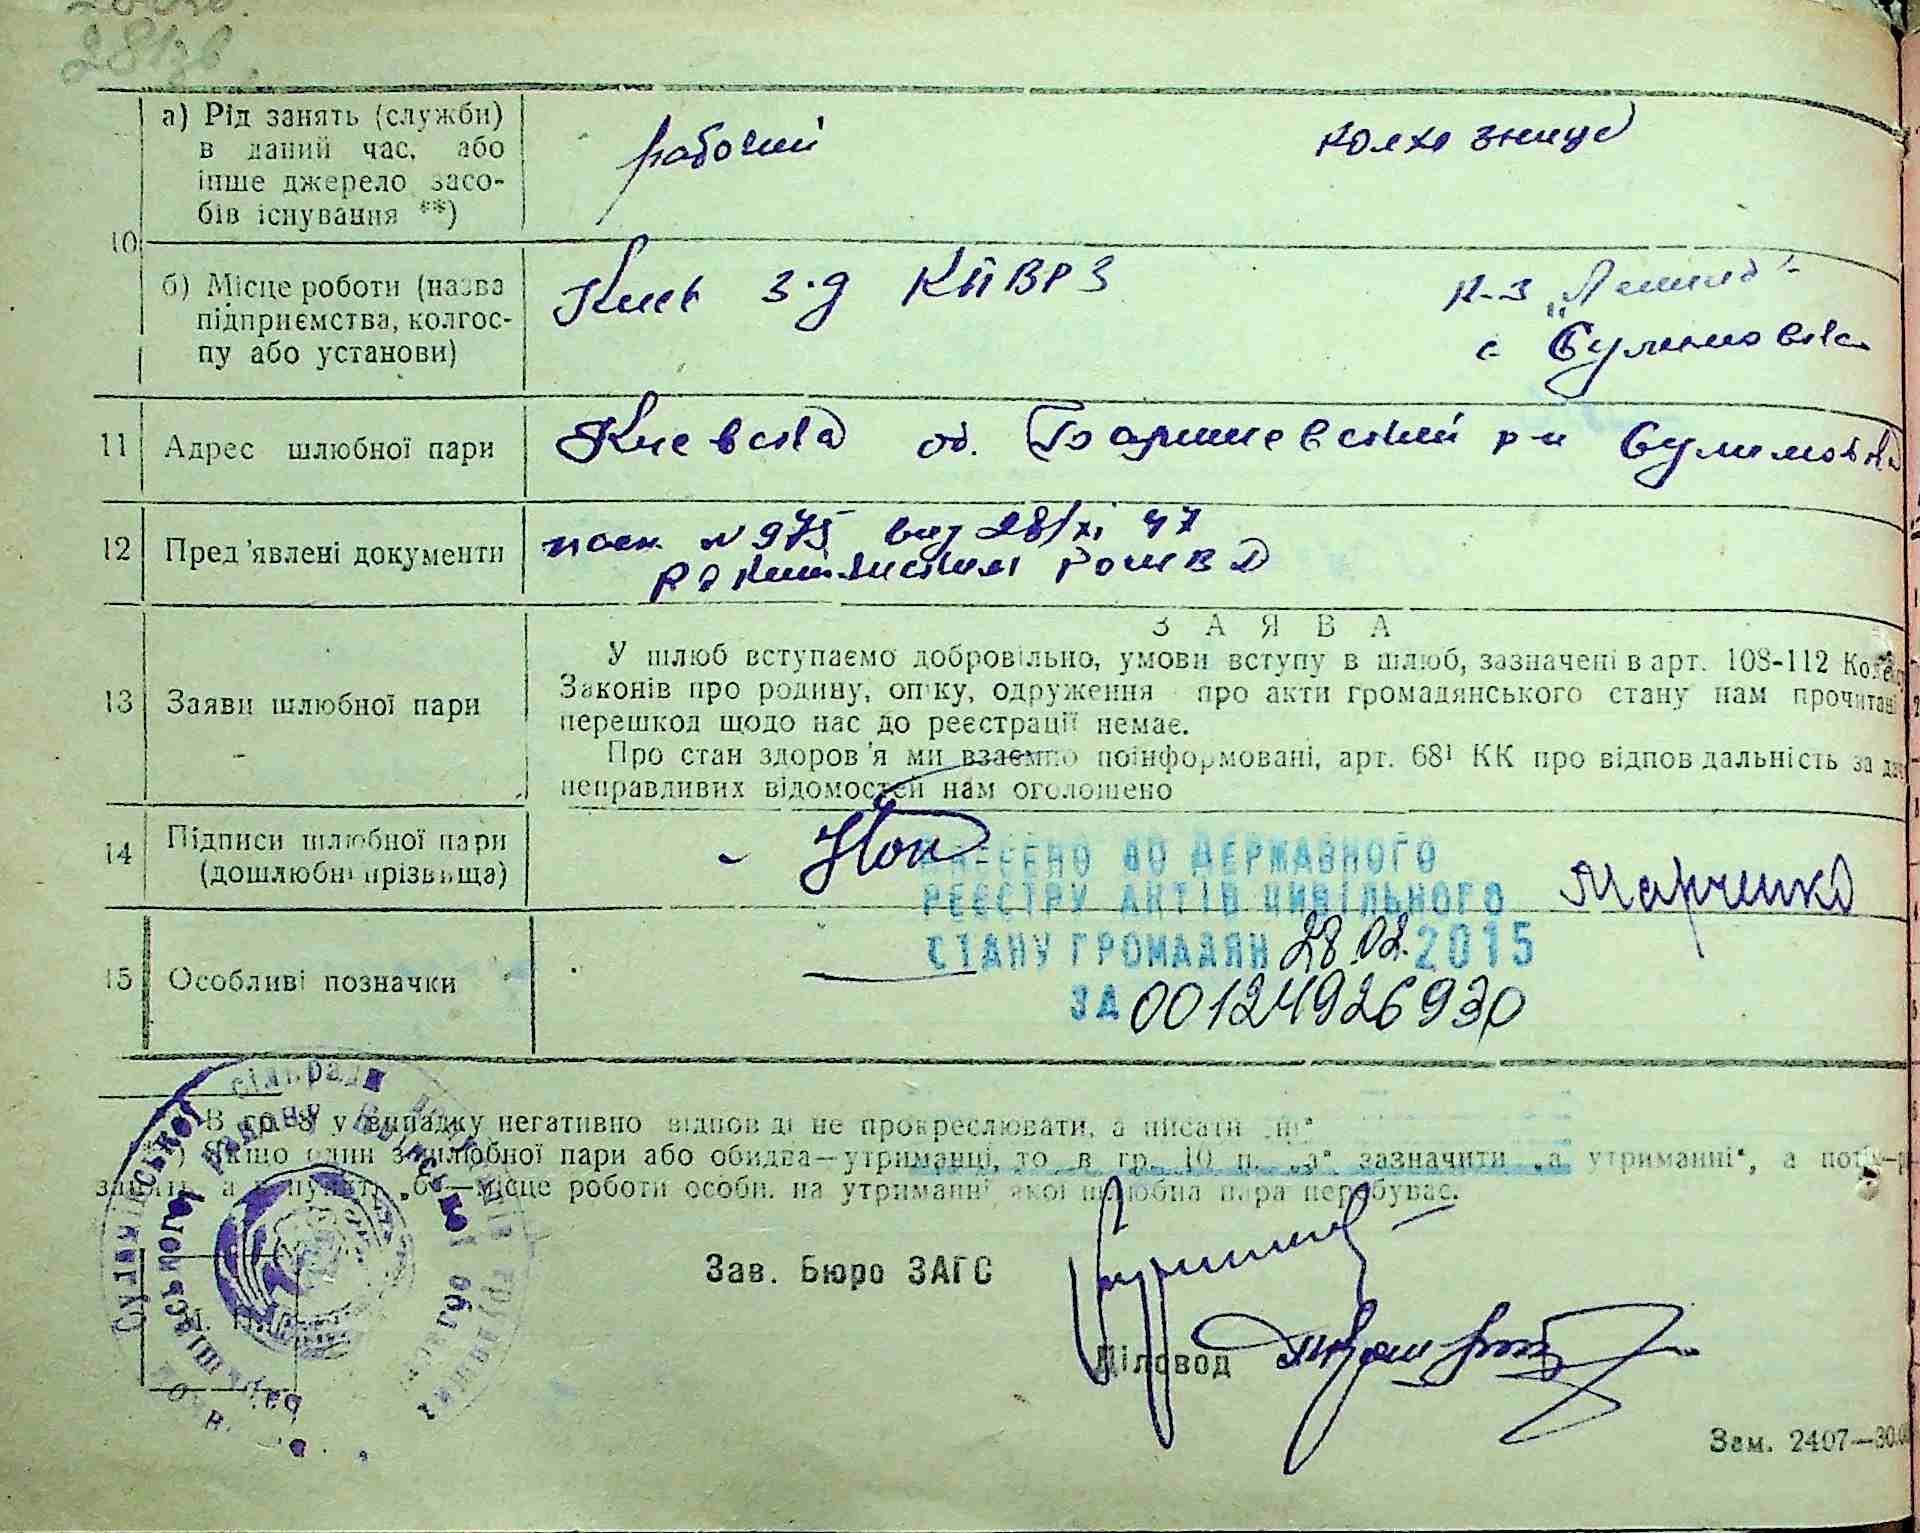 281зв
а) Рід занять (служби)
в даний час, або
інше джерело засо-
бів існування **)
рабочий
колхозница
10
б) Місце роботи (назва
підприємства, колгос-
пу або установи)
Киев з-д КПВРЗ
к-з „Ленина"
с Сулимовка
11 Адрес шлюбної пари
Киевска об. Баришевский р-н Сулимовка
12 Пред'явлені документи
№ 975 вид 28/XI 47
13 Заяви шлюбної пари
ЗАЯВА
У шлюб вступаємо добровільно, умови вступу в шлюб, зазначені в арт. 108-112
Законів про родину, опіку, одруження про акти громадянського стану нам прочитані
перешкод щодо нас до реєстрації немає.
Про стан здоров'я ми взаємно поінформовані, арт. 68¹ КК про відповідальність за
неправдивих відомостей нам оголошено
14 Підписи шлюбної пари
(дошлюбні прізвища)
Марченко
ВНЕСЕНО ДО ДЕРЖАВНОГО
РЕЄСТРУ АКТІВ ЦИВІЛЬНОГО
СТАНУ ГРОМАДЯН 28.02.2015
ЗА 00124926930
15 Особливі позначки
В гр. 8 у випадку негативно відповіді не прокреслювати, а писати „ні"
Якщо один з шлюбної пари або обидва—утриманці, то в гр. 10 п. „а" зазначити „а утриманні", а
а в пункті „б"—місце роботи особи, на утриманні якої шлюбна пара перебуває.
Сулимівської сільради
Баришівського району Київської
Зав. Бюро ЗАГС
Діловод
Зам. 2407—30.0